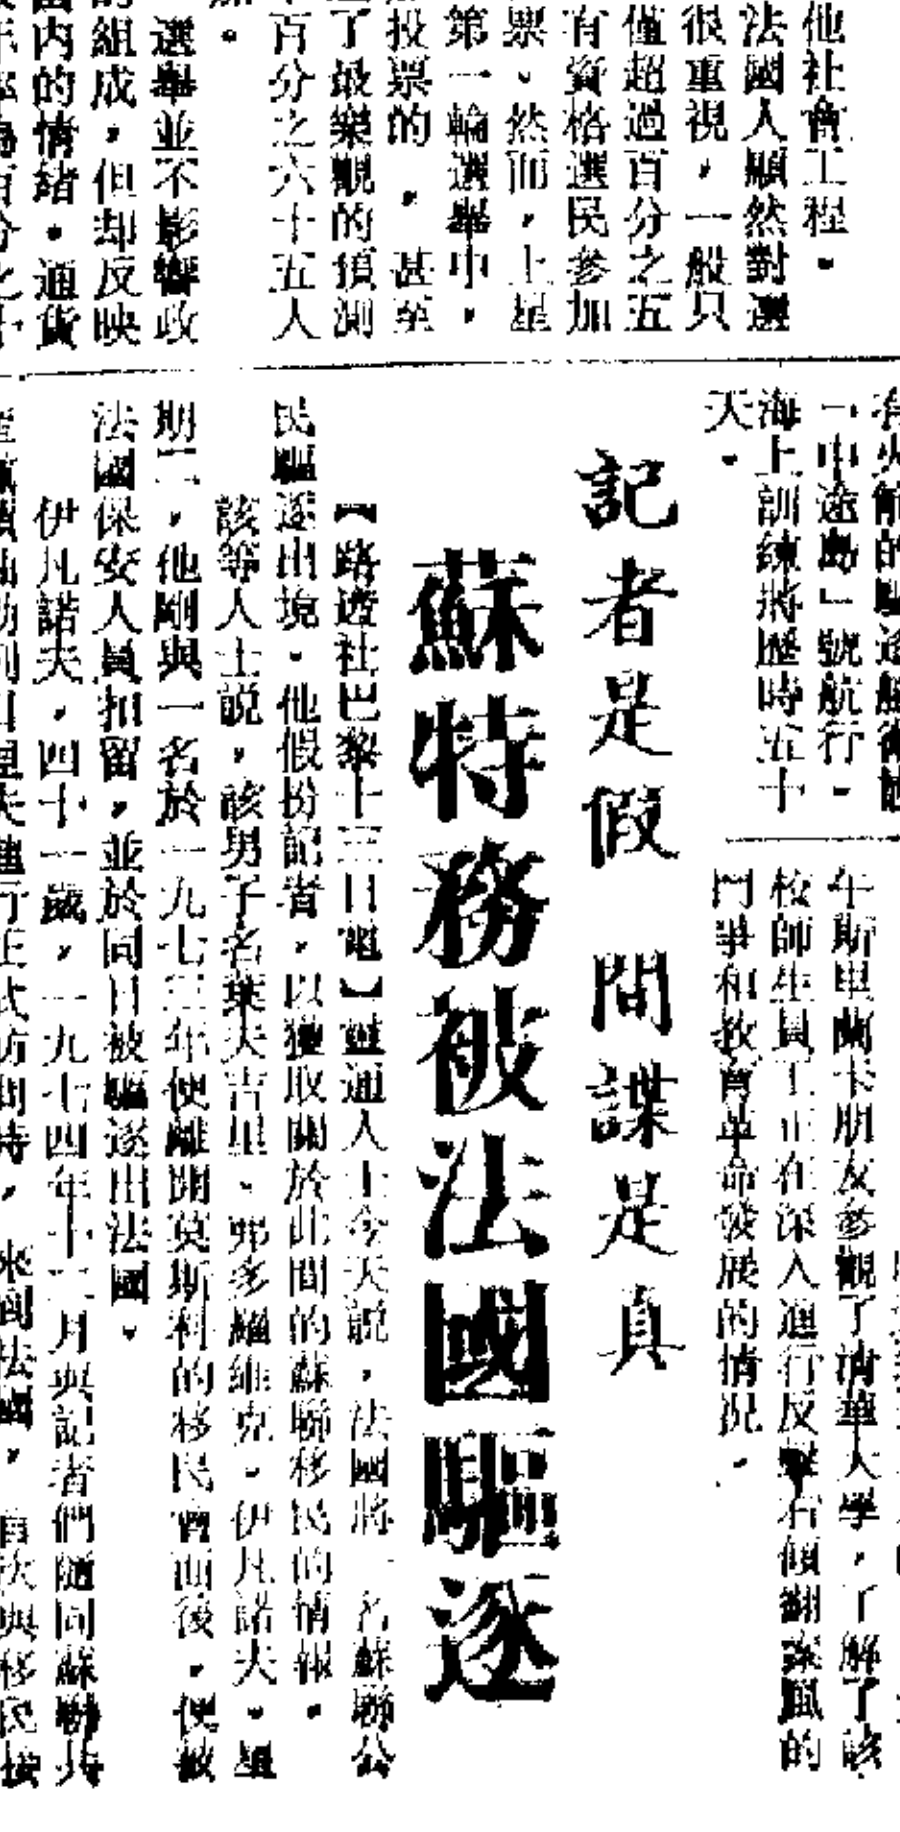 他社會工程。
法國人顯然對選
很重視，一般只
僅超過百分之五
有資格選民參加
票、然而，上星
第一輪選舉中，
投票的，甚至
了最樂觀的預測
百分之六十五人
選舉並不影響政
的組成，但却反映
國內的情緒。通貨
「中途島」號航行。
海上訓練將歷時五十
天。
午斯里蘭卡朋友參觀了清華大學，了解了該
校師生員工正在深入進行反擊右傾翻案風的
鬥爭和教育革命發展的情況。
記者是假 間諜是真
蘇特務被法國驅逐
【路透社巴黎十三日電】靈通人士今天說，法國將一名蘇聯公
民驅逐出境。他假扮記者，以獲取關於此間的蘇聯移民的情報。
該等人士說，該男子名葉夫吉星、弗多羅維克。伊凡諾夫。星
期二，他剛與一名於一九七三年便離開莫斯科的移民會面後，便被
法國保安人員扣留，並於同日被驅逐出法國。
伊凡諾夫，四十一歲，一九七四年十二月與記者們隨同蘇聯共